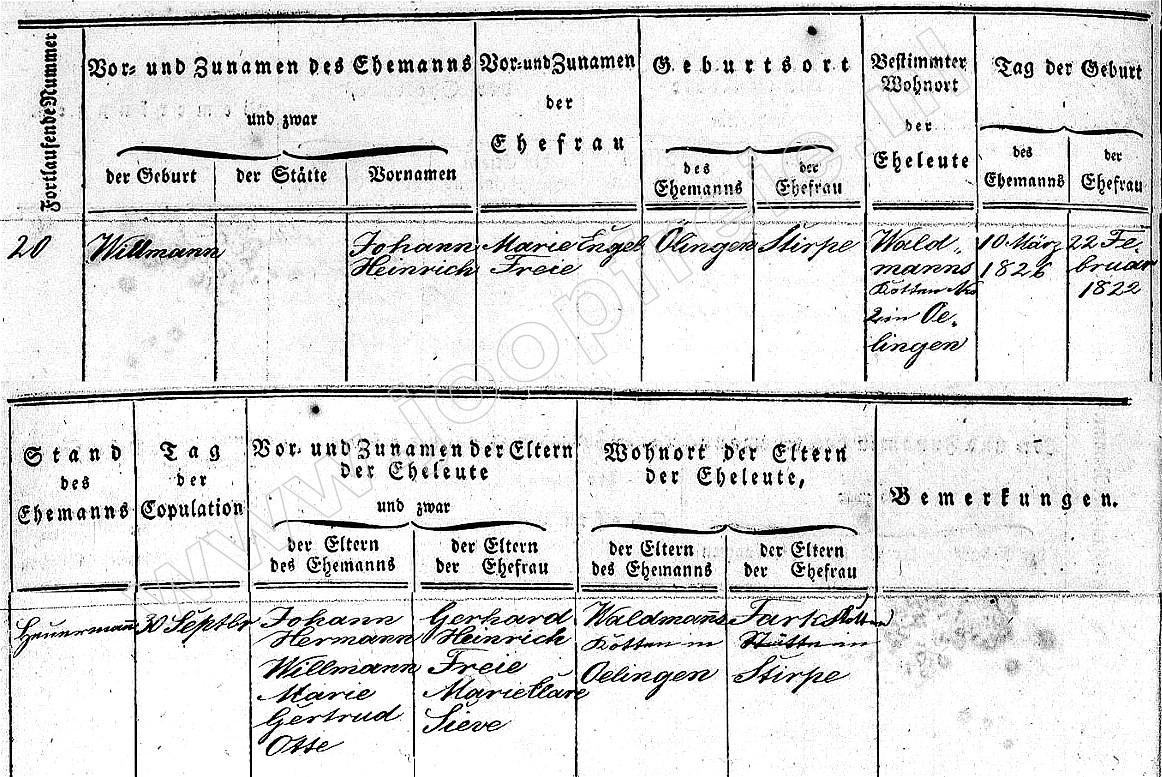 Fortlaufende Nummer
Vor- und Zunamen des Ehemanns
und zwar
der Geburt
der Stätte
Vornamen
Vor- und Zunamen
der
Ehefrau
Geburtsort
des
Ehemanns
der
Ehefrau
Bestimmter
Wohnort
der
Eheleute
Tag der Geburt
des
Ehemanns
der
Ehefrau
20
Willmann
Johann
Heinrich
Marie Engel
Freie
Ölingen
Stirpe
Wald
manns
Kotten No
2 in Oe-
lingen
10 März
1826
22 Fe-
bruar
1822
Stand
des
Ehemanns
Tag
der
Copulation
Vor- und Zunamen der Eltern
der Eheleute
und zwar
der Eltern
des Ehemanns
der Eltern
der Ehefrau
Wohnort der Eltern
der Eheleute,
der Eltern
des Ehemanns
der Eltern
der Ehefrau
Bemerkungen.
Heuermann
30 Septbr
Johann
Hermann
Willmann
Marie
Gertrud
Otte
Gerhard
Heinrich
Freie
Marie Clare
Sieve
Waldmanns
Kotten in
Oelingen
Fark Kotten
Stätte in
Stirpe